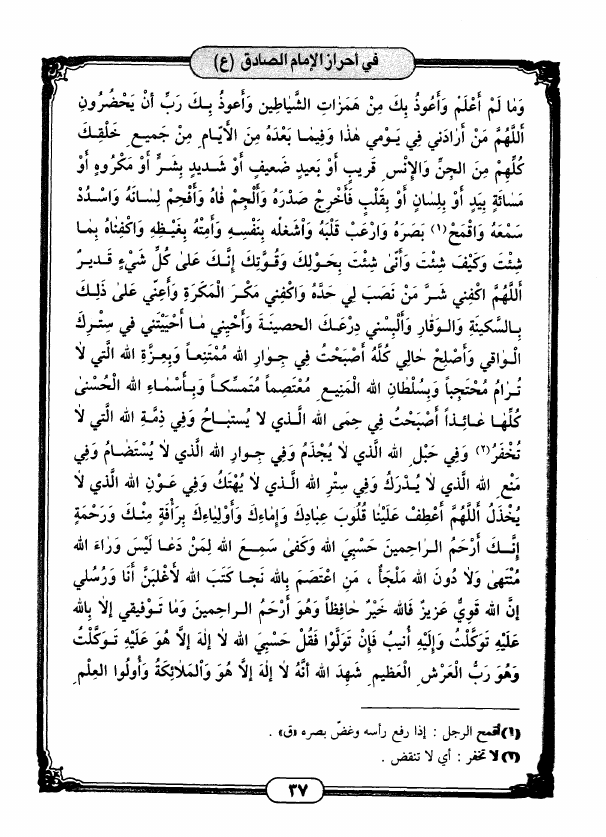 في أحراز الإمام الصادق (ع)
وَمٰا لَمْ أَعْلَمْ وَأَعُوذُ بِكَ مِنْ هَمَزاتِ الشَّيٰاطِينِ وَأَعوذُ بِـكَ رَبِّ أَنْ يَحْضُرُونِ
أَللّٰهُمَّ مَنْ أَرٰادَني فِي يَوْمي هٰذا وَفِيمٰا بَعْدَهُ مِنَ الأَيّٰامِ مِنْ جَمِيعِ خَلْقِكَ
كُلِّهِمْ مِنَ الجِنِّ وَالإِنْسِ قَرِيبٍ أَوْ بَعيدٍ ضَعيفٍ أَوْ شَديدٍ بِشَرٍّ أَوْ مَكْرُوهٍ أَوْ
مَسٰائَةٍ بِيَدٍ أَوْ بِلِسٰانٍ أَوْ بِقَلْبٍ فَأَخْرِجْ صَدْرَهُ وَأَلْجِمْ فٰاهُ وَأَفْحِمْ لِسٰانَهُ وَاسْدُدْ
سَمْعَهُ وَاقْمَحْ (١) بَصَرَهُ وَارْعَبْ قَلْبَهُ وَاَشْغلْه بِنَفْسِهِ وَأَمِتْهُ بِغَيْظِهِ وَاكْفِنٰاهُ بِمٰـا
شِئْتَ وَكَيْفَ شِئْتَ وَأَنّىٰ شِئْتَ بِحَوْلِكَ وَقُوَّتِكَ إِنَّكَ عَلىٰ كُلِّ شَيْءٍ قَدِيرٌ
أَللّٰهُمَّ اكْفِني شَرَّ مَنْ نَصَبَ لِي حَدَّهُ وَاكْفِني مَكْرَ الْمَكَرَةِ وَأَعِنّي عَلىٰ ذٰلِكَ
بِـالسَّكينَةِ وَالـوَقٰارِ وَأَلْبِسْني دِرْعَـكَ الحَصينَـةَ وَأَحْيِني مٰـا أَحْيَيْتَني في سِتْرِكَ
الْـوٰاقي وَأَصْلِحْ حٰالِي كُلَّهُ أَصْبَحْتُ فِي جِوٰارِ الله مُمْتَنِعـاً وَبِعِـزَّةِ الله الَّتي لاٰ
تُـرٰامُ مُحْتَجِباً وَبِسُلْطٰانِ الله الْمَنِيعِ مُعْتَصِماً مُتَمَسِّكاً وَبِـأَسْمٰـاءِ الله الْحُسْنىٰ
كُلِّهٰا عٰـائِـذاً أَصْبَحْتُ فِي حِمَى الله الَّـذي لاٰ يُسْتَبٰـاحُ وَفي ذِمَّـةِ الله الَّتي لاٰ
تُخْفَرُ (٢) وَفِي حَبْلِ الله الَّذي لاٰ يُجْذَمُ وَفي جِـوٰارِ الله الَّذي لاٰ يُسْتَضٰـامُ وَفِي
مَنْعِ الله الَّذي لاٰ يُـدْرَكُ وَفِي سِتْرِ الله الَّـذي لاٰ يُهْتَكُ وَفي عَـوْنِ الله الَّذي لاٰ
يُخْذَلُ أَللّٰهُمَّ أَعْطِفْ عَلَيْنٰا قُلُوبَ عِبٰادِكَ وَإِمٰاءِكَ وَأَوْلِيٰاءِكَ بِرَأْفَةٍ مِنْـكَ وَرَحْمَةٍ
إِنَّـكَ أَرْحَمُ الـرٰاحِمينَ حَسْبِيَ الله وَكَفىٰ سَمِـعَ الله لِمَنْ دَعٰـا لَيْسَ وَرٰاءَ الله
مُنْتَهىٰ وَلاٰ دُونَ الله مَلْجَأٌ ، مَنِ اعْتَصَمَ بِاللهِ نَجٰـا كَتَبَ الله لَأَغْلِبَنَّ أَنَا وَرُسُلي
إِنَّ الله قَوِيٌّ عَزِيزٌ فَالله خَيْرٌ حٰافِظاً وَهُوَ أَرْحَمُ الـراحِمينَ وَمٰا تَوفيقي إِلاّٰ بِاللهِ
عَلَيْهِ تَوَكَّلْتُ وَإِلَيْهِ أُنيبُ فَإِنْ تَوَلَّوْا فَقُلْ حَسْبِيَ الله لاٰ إِلٰهَ إِلاّٰ هُوَ عَلَيْهِ تَـوَكَّلْتُ
وَهُوَ رَبُّ الْعَرْشِ الْعَظيمِ شَهِدَ الله أَنَّهُ لاٰ إِلٰهَ إِلاّٰ هُوَ وَالْمَلاٰئِكَةُ وَأُولُوا الْعِلْمِ
(١) أقمح الرجل : إذا رفع رأسه وغضّ بصره «ق» .
(٢) لا تخفر : أي لا تنقض .
٣٧